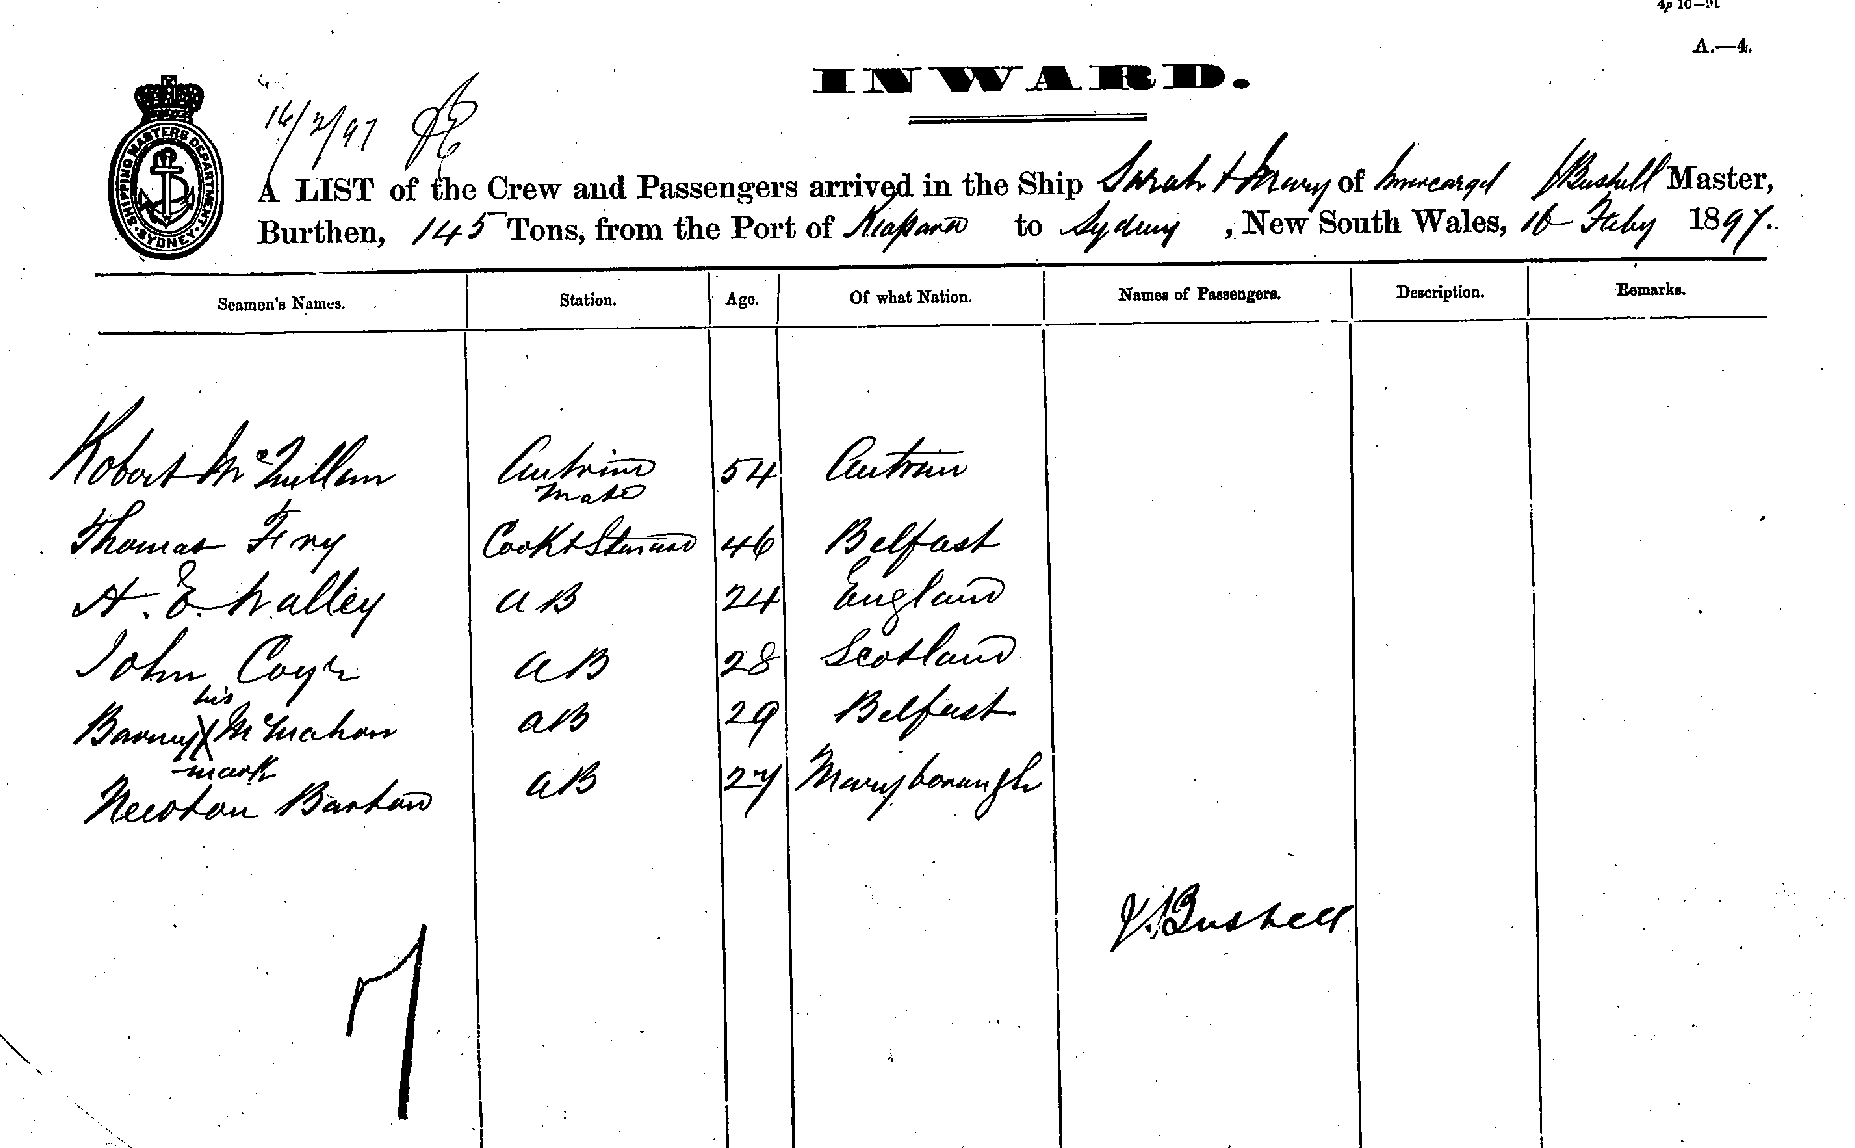 4p 10–91
A.—4.
INWARD.
16/2/97
SHIPPING MASTERS DEPARTMENT SYDNEY
A LIST of the Crew and Passengers arrived in the Ship Sarah & Mary of Invercargil J Bushell Master,
Burthen, 145 Tons, from the Port of Kaipara to Sydney, New South Wales, 16 Feby 1897.
Seamen's Names. Station. Age. Of what Nation. Names of Passengers. Description. Remarks.
Robert McQuillan Antrim 54 Antrim
Mate
Thomas Cook & Steward 46 Belfast
A. E. Walley AB 24 England
John AB 28 Scotland
his
Barney X McMahon AB 29 Belfast
mark
Newton Barton AB 27 Maryborough
J. Bushell
7